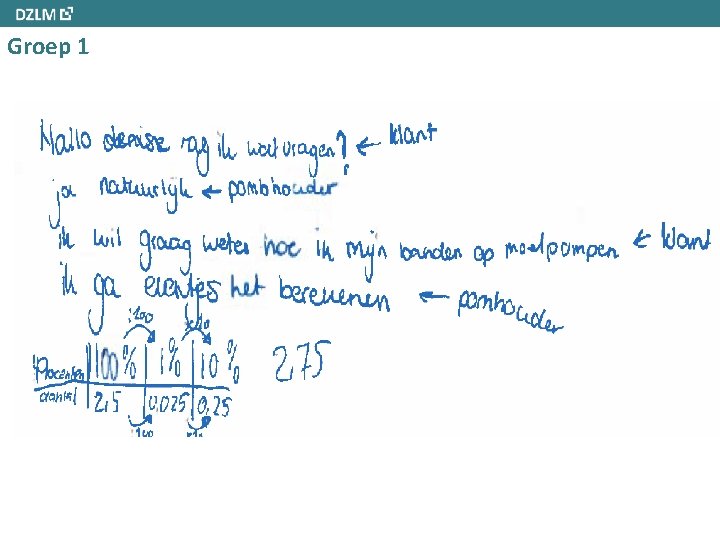 DZLM
Groep 1
Hallo denise mag ik wat vragen? ← klant
ja natuurlijk ← pomphouder
ik wil graag weten hoe ik mijn banden op moet pompen ← klant
ik ga eventjes het berekenen ← pomhouder
:100 x10
Procenten 100% 1% 10% 2,75
aantal 2,5 0,025 0,25
:100 x10